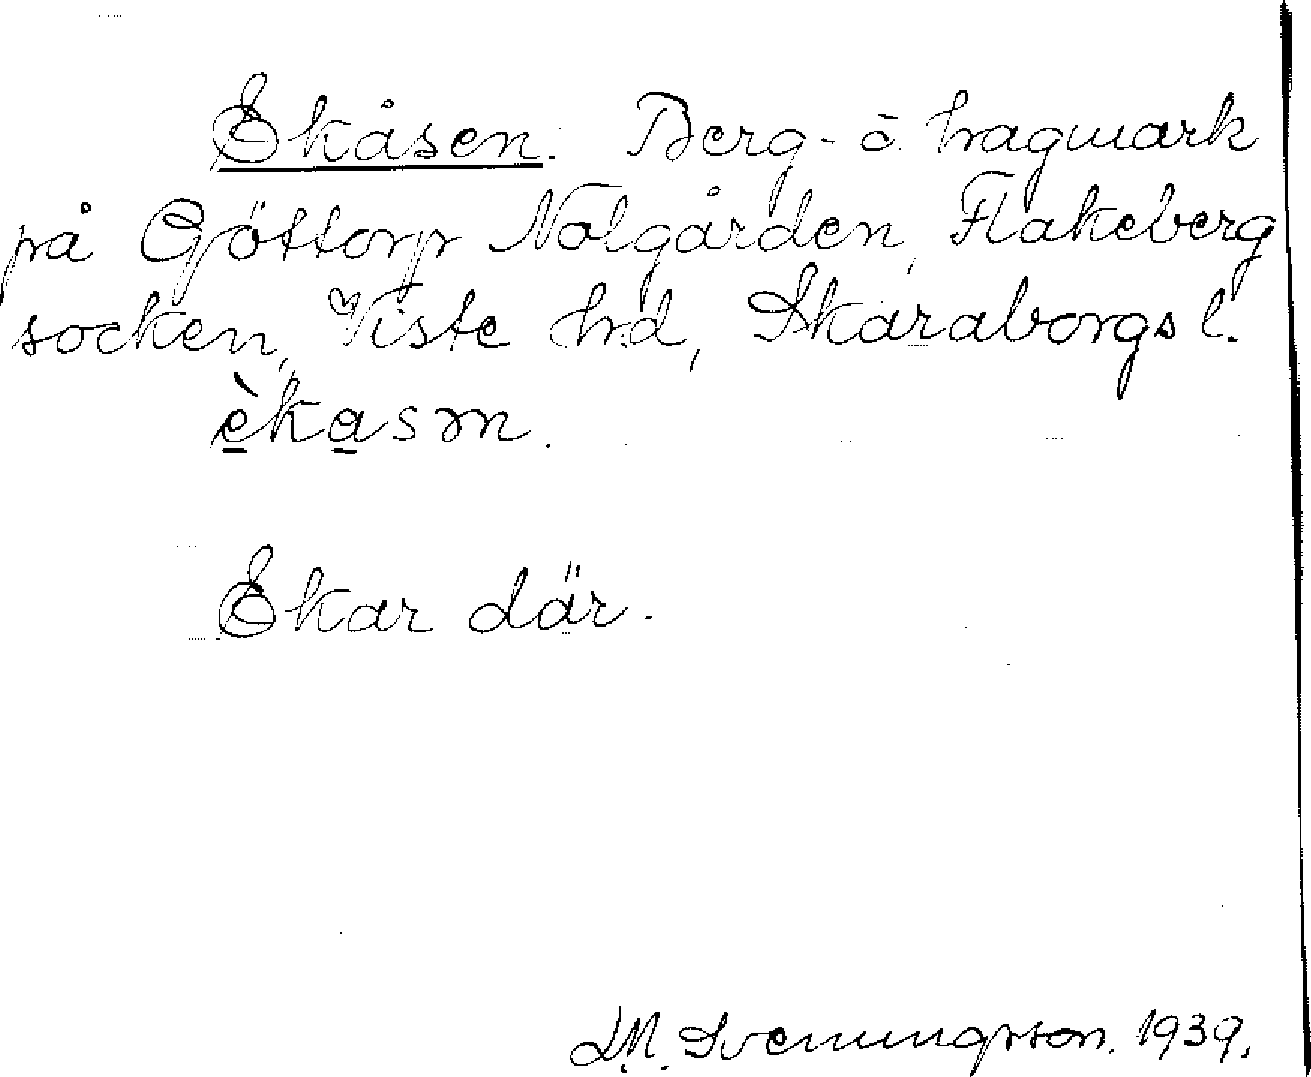 Ekåsen. Berg- o. hagmark
på Göttorp Nolgården, Flakeberg
socken, Viste hd, Skaraborgs l.
èkasm.
Ekar där.
L.M. Svenungsson. 1939.